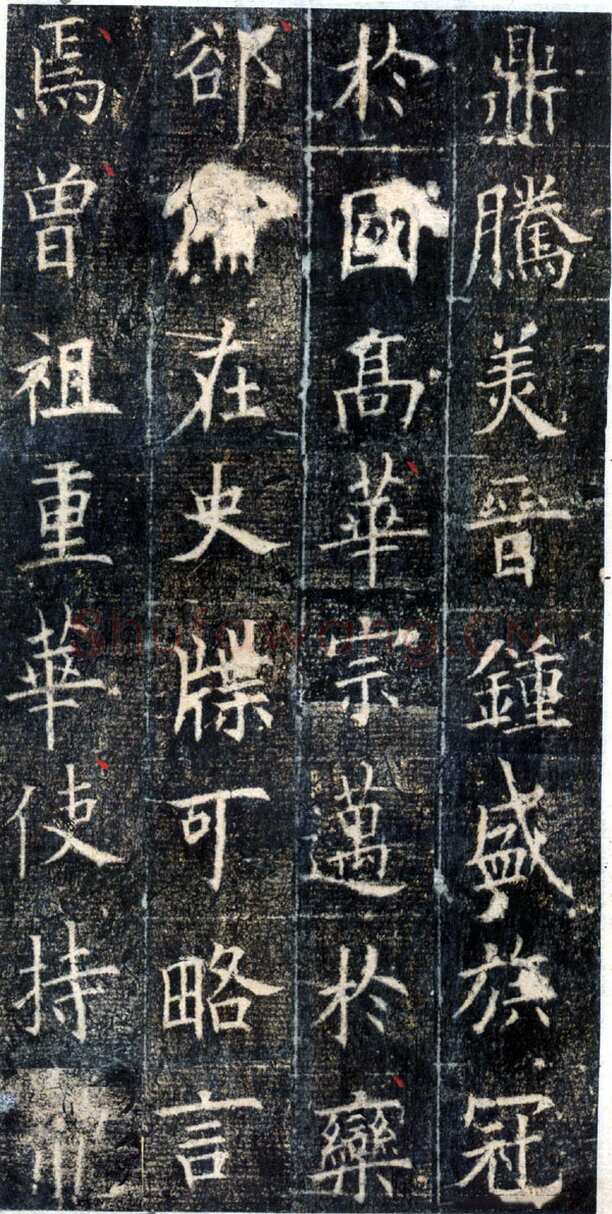 鼎騰美晉鍾盛族冠
於國髙華宗邁於欒
郤在史牒可略言
焉曾祖重華使持
Shufawang.CN